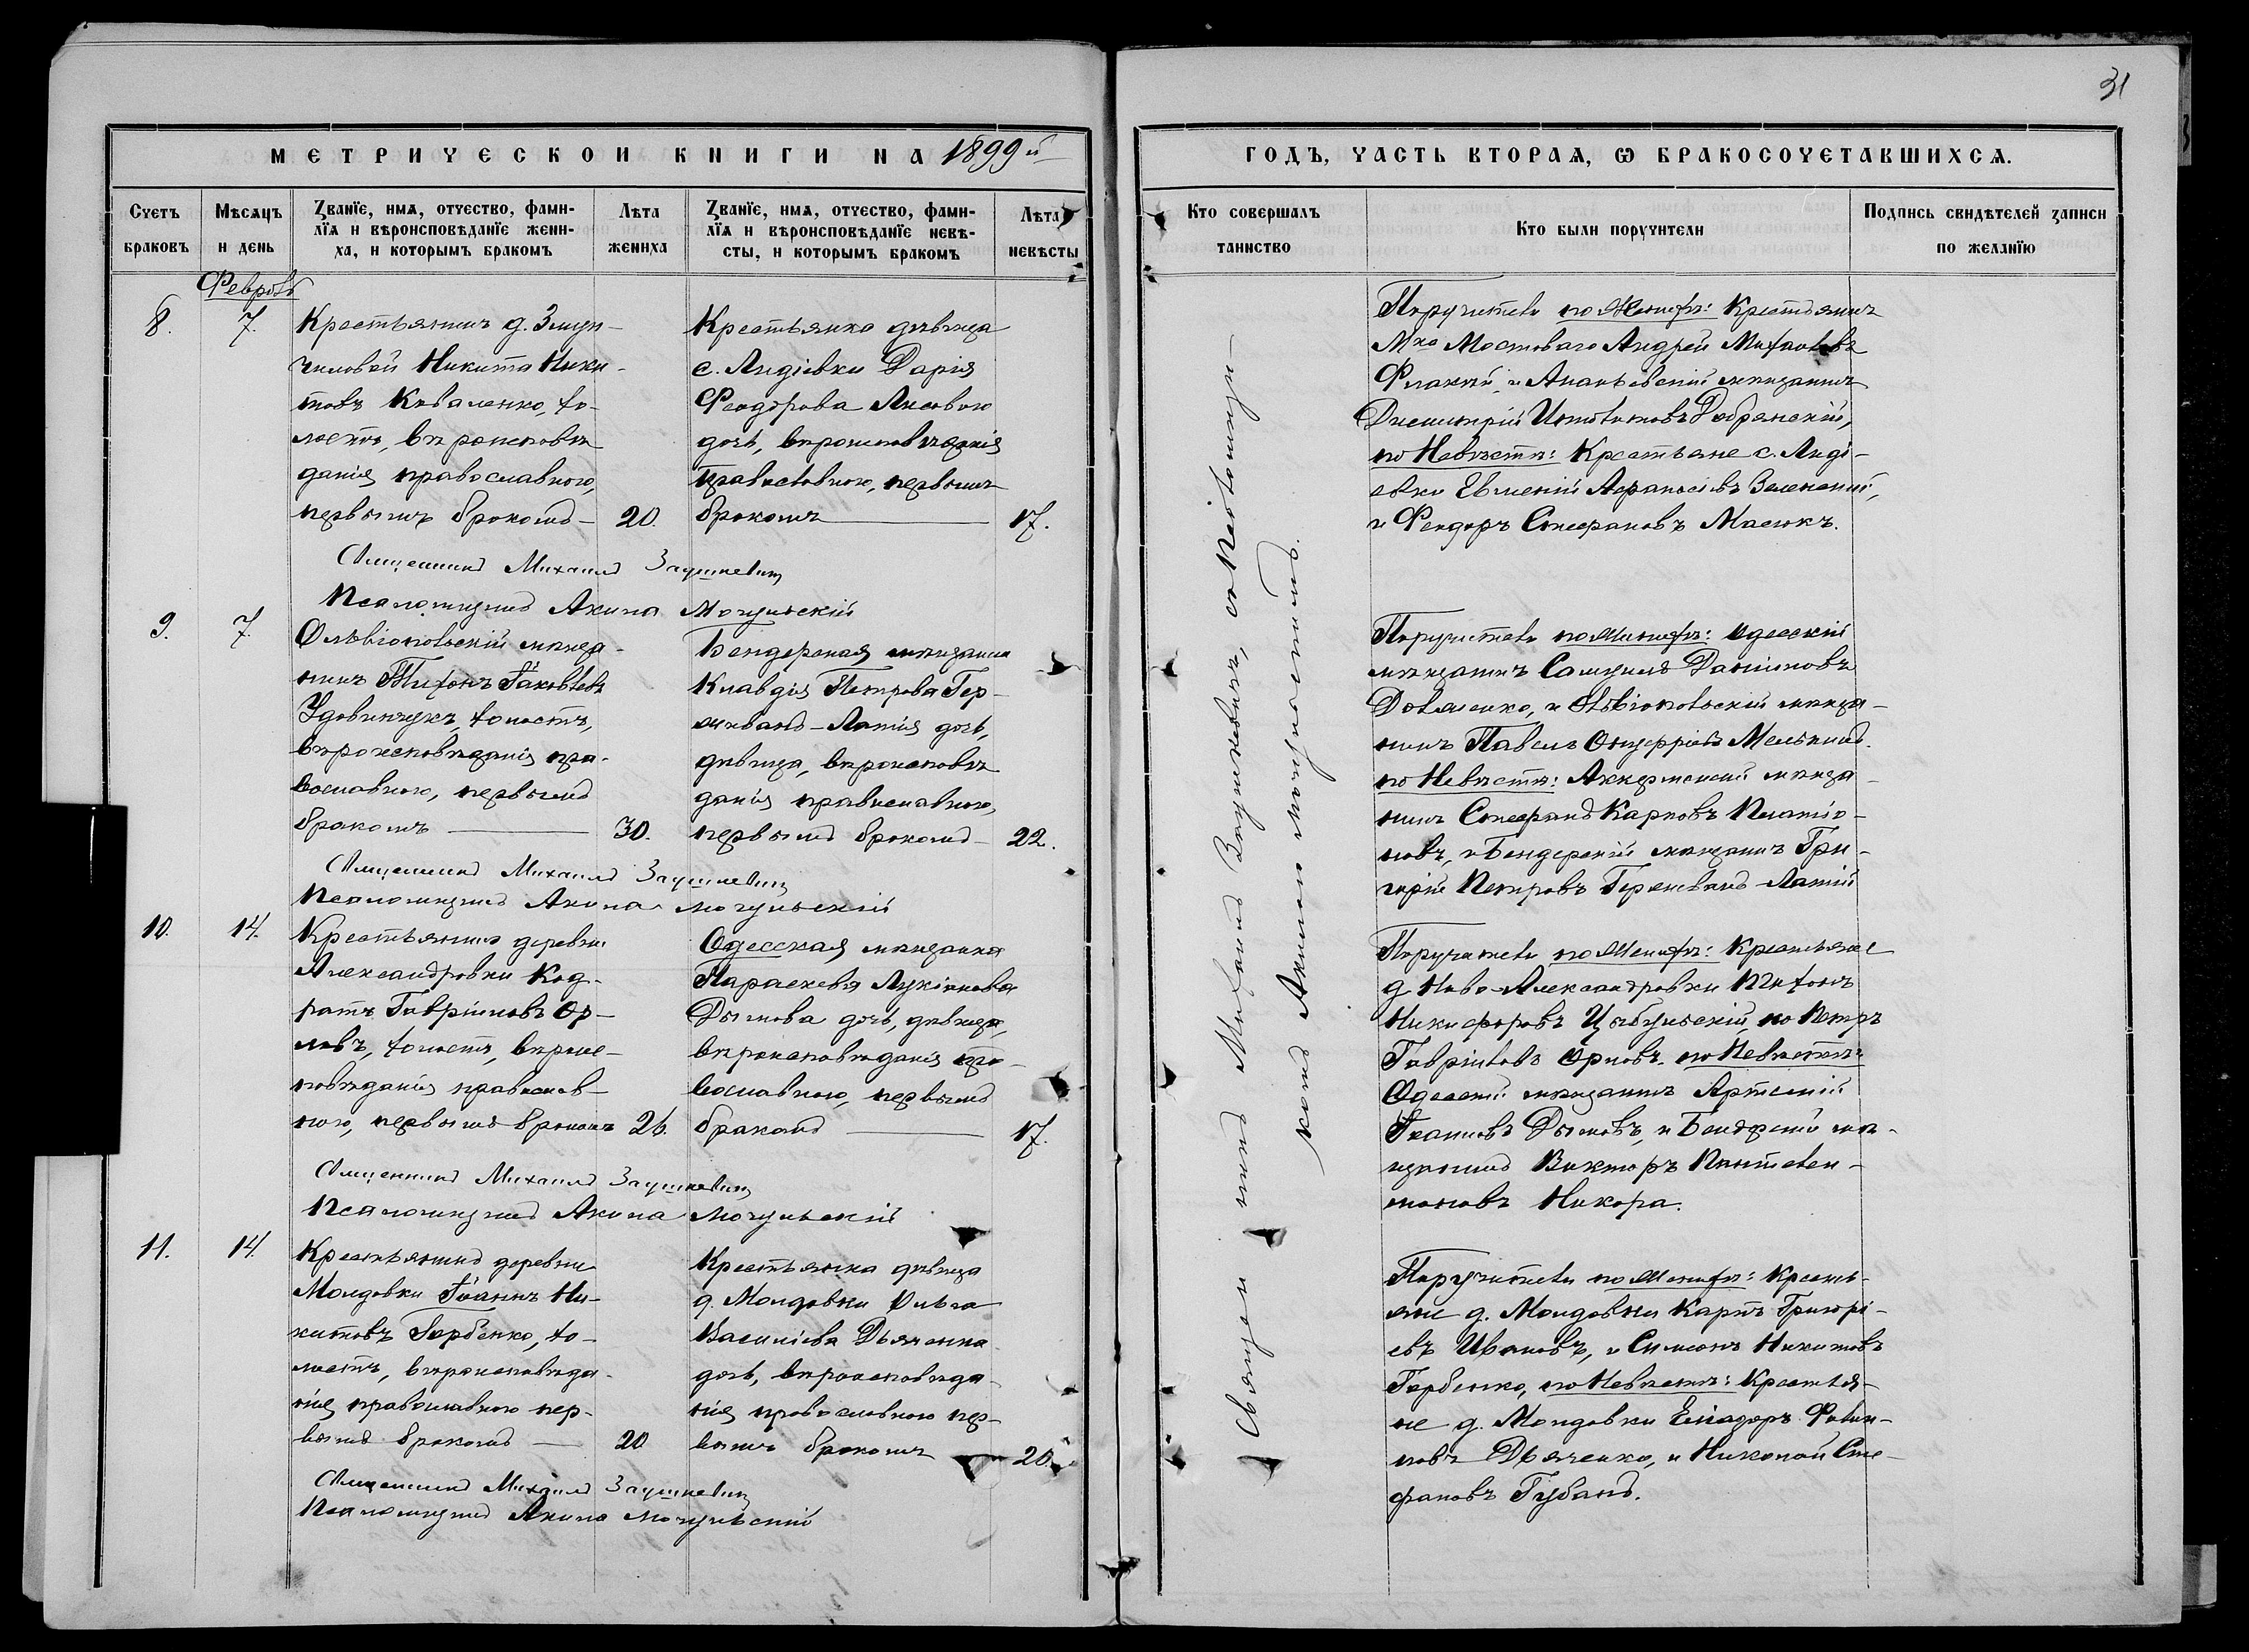 31
МЕТРИЧЕСКОЙ КНИГИ НА 1899й
ГОДЪ, ЧАСТЬ ВТОРАЯ, Ѡ БРАКОСОЧЕТАВШИХСЯ.
Счетъ браковъ
Мѣсяцъ и день
Званїе, имя, отчество, фами-
лїя и вѣроисповѣданїе жени-
ха, и которымъ бракомъ
Лѣта жениха
Званїе, имя, отчество, фами-
лїя и вѣроисповѣданїе невѣ-
сты, и которымъ бракомъ
Лѣта невѣсты
Кто совершалъ таинство
Кто были поручители
Подпись свидѣтелей записи по желанїю
8.
7.
Крестьянинъ д.
Никита Ники-
товъ Коваленко, хо-
лостъ, вѣроисповѣ
данія православного,
первымъ бракомъ
20.
Крестьянка дѣвица
с. Лидіевки Дарія
Феодорова
дочь, вѣроисповѣданія
православного, первымъ
бракомъ
17.
Поручители по женихѣ: Крестьянинъ
Мка Мостоваго Андрей Михаиловъ
и Ананьевскій мѣщанинъ
Димитрій
по Невѣстѣ: Крестьяне с. Лидi-
евки Евмений
и Феодоръ Стефановъ Масюкъ.
Священникъ Михаилъ
Псаломщикъ Акима Могульскій
9.
7.
мѣща-
нинъ Тихонъ Іаковлевъ
Удовинчукъ, холостъ,
вѣроисповѣданія пра-
вославного, первымъ
бракомъ
30.
Бендерская мѣщанка
Клавдія Петрова Гер-
дочь,
дѣвица, вѣроисповѣ
данія православного,
первымъ бракомъ
22.
Поручители по женихѣ: Одесскій
мѣщанинъ Самуилъ Даниловъ
Довженко, и мѣща-
нинъ Павелъ Онуфріевъ Мельникъ.
по Невѣстѣ: Аккерманскій мѣща-
нинъ Стефанъ Карповъ Платіо-
новъ, и Бендерскій мѣщанинъ Гри-
горій Петровъ
Священникъ Михаилъ
Псаломщикъ Акима Могульскій
10.
14.
Крестьянинъ деревни
Александровки Код-
ратъ Гавріиловъ Ор-
ловъ, холостъ, вѣроис-
повѣданія православ-
ного, первымъ бракомъ
26.
Одесская мѣщанка
Параскева Лукіанова
Дымова дочь, дѣвица,
вѣроисповѣданія пра-
вославного, первымъ
бракомъ
17.
Поручители по женихѣ: Крестьяне
д. Ново-Александровки Тихонъ
Никифоровъ Цыбульскій, Петръ
Гавріиловъ Орловъ. по Невѣстѣ:
Одесскій мѣщанинъ Артемій
Дымовъ, и Бендерскій мѣ-
щанинъ Викторъ Пантелей-
моновъ Никора.
Священникъ Михаилъ
Псаломщикъ Акима Могульскій
11.
14.
Крестьянинъ деревни
Молдовки Іоаннъ Ни-
китовъ Горбенко, хо-
лостъ, вѣроисповѣда-
нія православного пер-
вымъ бракомъ
20
Крестьянка дѣвица
д. Молдовки Ольга
Василіева Дьяченка
дочь, вѣроисповѣда-
нія православного пер-
вымъ бракомъ
20.
Поручители по женихѣ: Кресть-
яне д. Молдовки Карпъ Григорі-
евъ Ивановъ, и Симеонъ Никитовъ
Горбенко, по Невѣстѣ: Крестья-
не д. Молдовки
Дьяченко, и Николай Сте-
фановъ Губань.
Священникъ Михаилъ
Псаломщикъ Акима Могульскій
Священникъ Михаилъ
Акимою Могульскимъ.